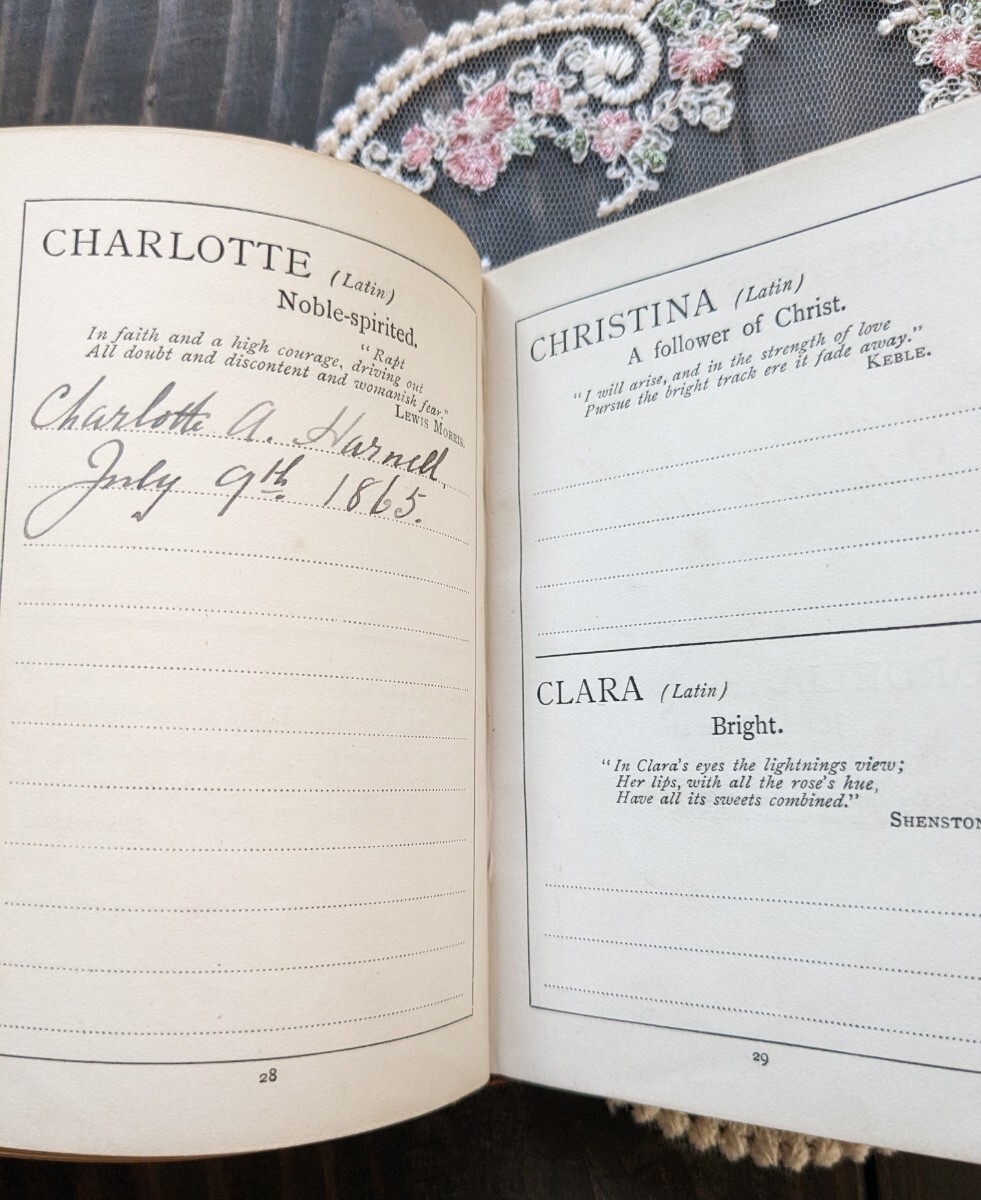 CHARLOTTE (Latin)
Noble-spirited.
"Rapt
In faith and a high courage, driving out
All doubt and discontent and womanish fear."
LEWIS MORRIS.
Charlotte A. Harnell,
July 9th 1865.
28
CHRISTINA (Latin)
A follower of Christ.
"I will arise, and in the strength of love
Pursue the bright track ere it fade away."
KEBLE.
CLARA (Latin)
Bright.
"In Clara's eyes the lightnings view;
Her lips, with all the rose's hue,
Have all its sweets combined."
SHENSTON
29